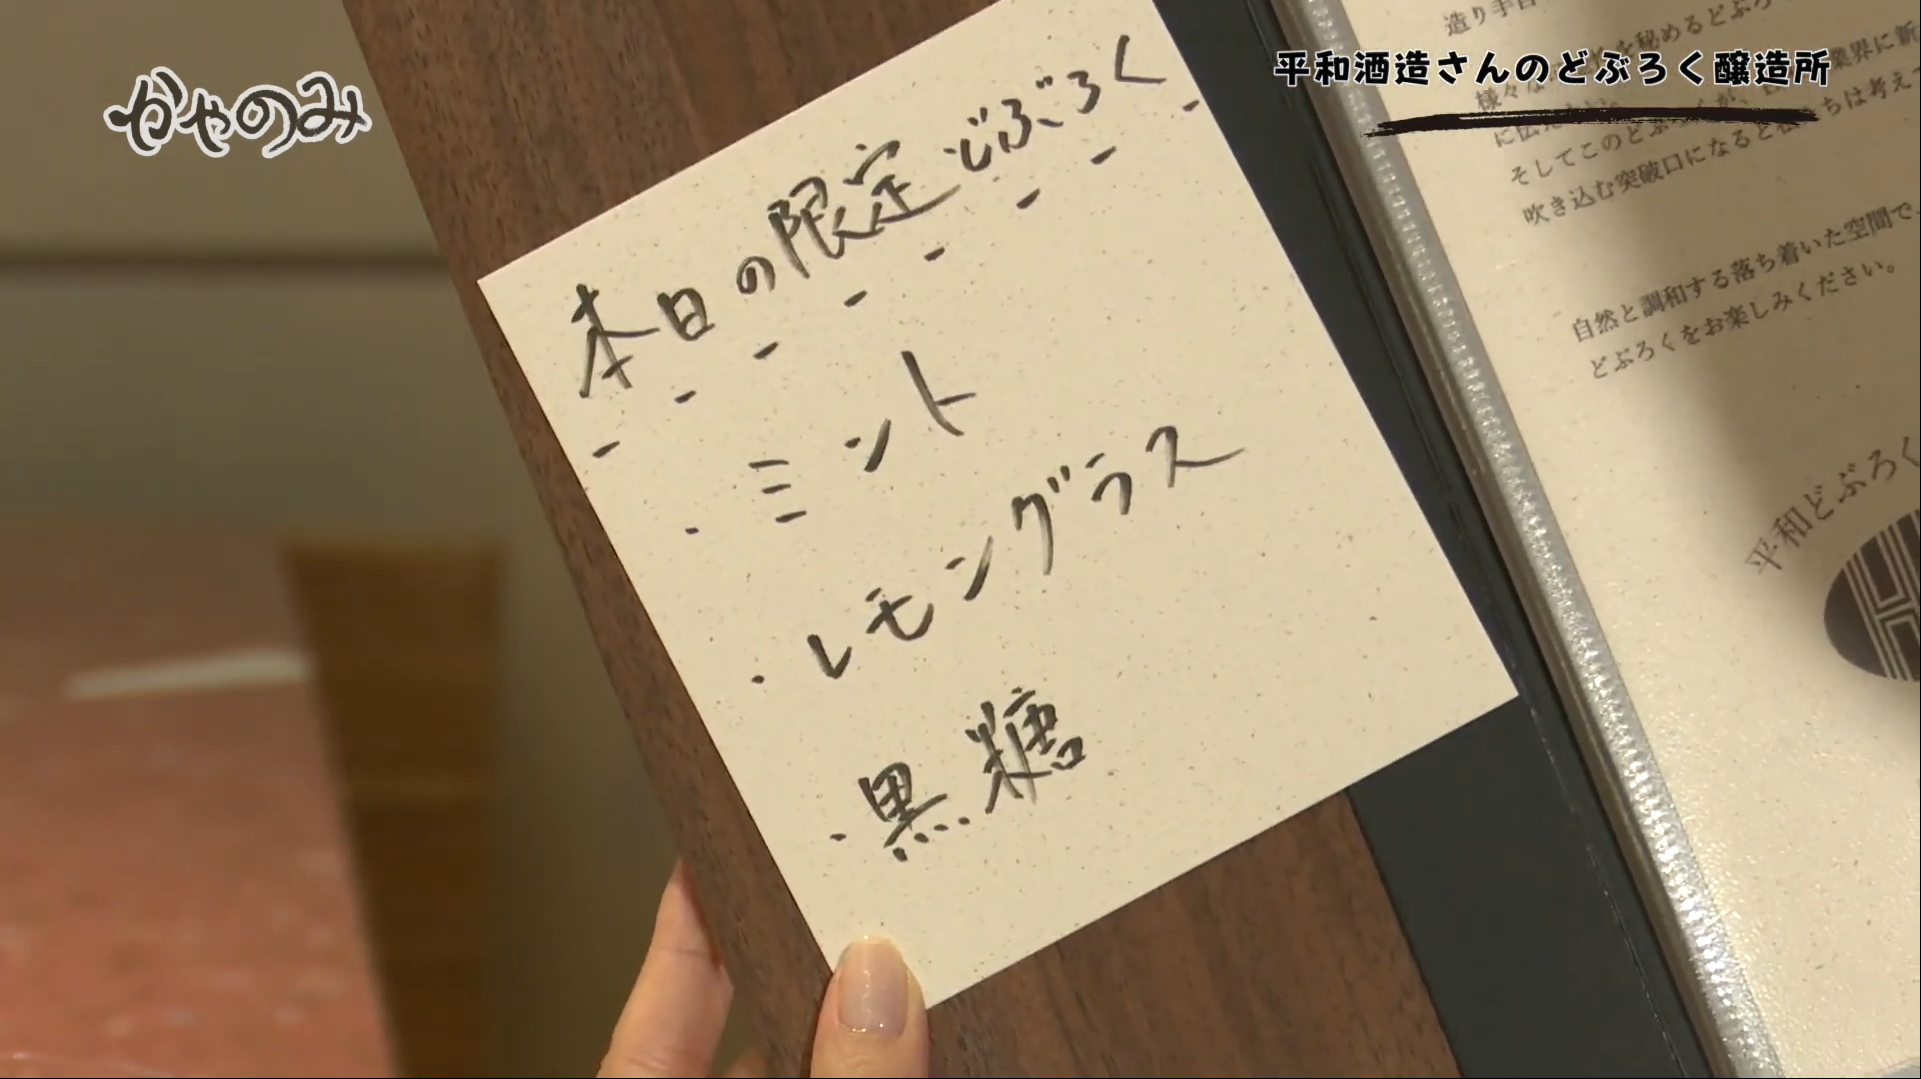 かやのみ
平和酒造さんのどぶろく醸造所
本日の限定どぶろく
・ミント
・レモングラス
・黒糖
造り手自
を秘めるどぶろ
業界に新
様々な
に伝え
ちは考えて
そしてこのどぶ
吹き込む突破口になると
自然と調和する落ち着いた空間で、
どぶろくをお楽しみください。
平和どぶろく